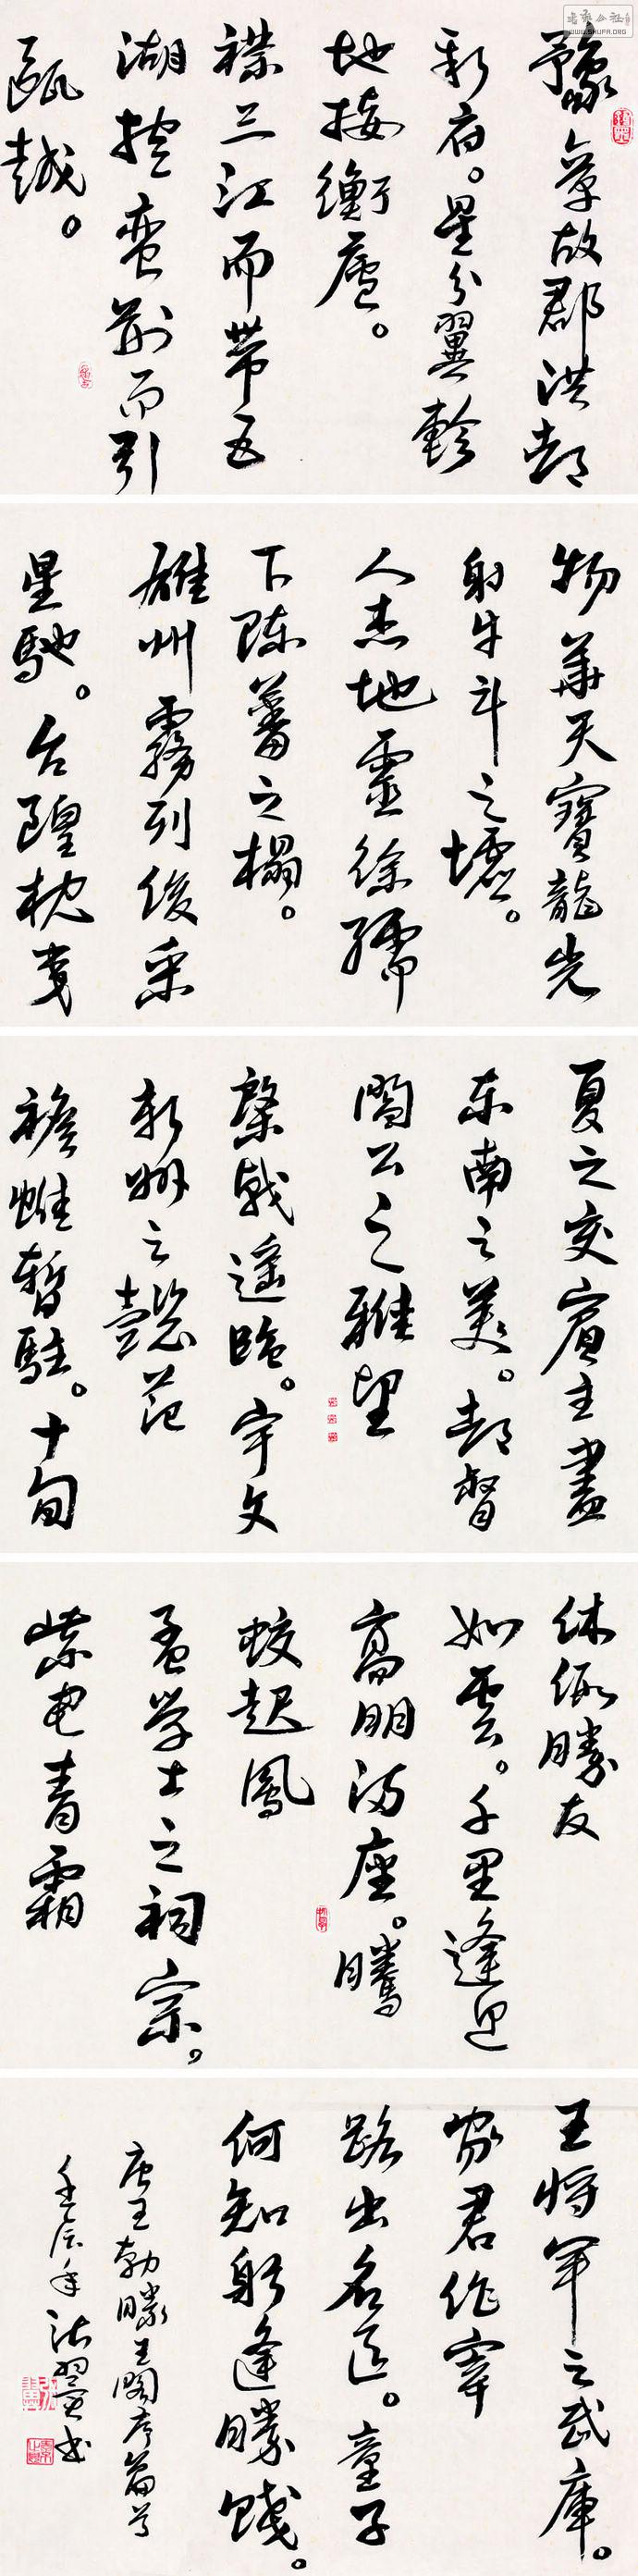 書法公社
WWW.SHUFA.ORG
豫章故郡洪都
新府。星分翼軫
地接衡廬。
襟三江而带五
湖控蛮荆而引
甌越。
物華天寶龍光
射牛斗之墟。
人杰地靈徐孺
下陈蕃之榻。
雄州霧列俊采
星馳。台隍枕夷
夏之交賓主盡
东南之美。都督
閻公之雅望
棨戟遥臨。宇文
新州之懿范
襜帷暂駐。十旬
休假勝友
如雲。千里逢迎
高朋满座。騰
蛟起鳳
孟学士之词宗。
紫电青霜
王将军之武庫。
家君作宰
路出名区。童子
何知躬逢勝餞。
唐王勃滕王閣序篇首
壬辰年